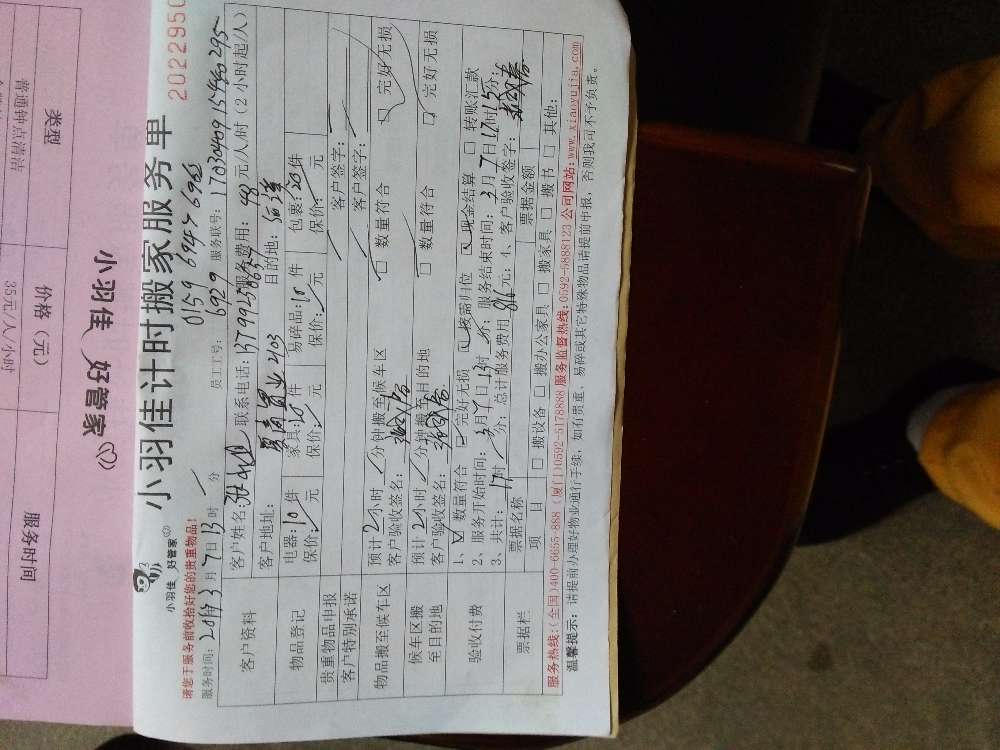 类型
价格（元）
服务时间
普通钟点清洁
35元/人/小时
小羽佳 好管家
小羽佳 好管家
小羽佳计时搬家服务单
2022950
请您于服务前收拾好您的贵重物品！
0159 6947 6963
服务时间：2019年3月7日13时 分
员工工号：6929
服务联号：
元/人/时（2小时起/人）
客户资料
客户姓名：
联系电话：
服务费用：48
客户地址：
2403
目的地：
物品登记
电器：10件
家具：10件
易碎品：10件
包裹：20件
保价： 元
保价： 元
保价： 元
保价： 元
贵重物品申报
客户签字：
客户特别承诺
客户签字：
物品搬至候车区
预计2小时 分钟搬至候车区
□ 数量符合
□ 完好无损
客户验收签名：
候车区搬至目的地
预计2小时 分钟搬至目的地
□ 数量符合
□ 完好无损
客户验收签名：
验收付费
1、☑ 数量符合 □ 完好无损 □ 按需归位 □ 现金结算 □ 转账汇款
2、服务开始时间：3月7日13时 分；服务结束时间：3月7日17时15分；
3、共计：17时 分；总计服务费用 816元；4、客户验收签字：
票据栏
票据名称
票据金额
项 目
□ 搬设备 □ 搬办公家具 □ 搬家具 □ 搬书 □ 其他：
服务热线：（全国）400-6655-888（厦门）0592-5178888 服务监督热线：0592-5888123 公司网站：www.xiaoyujia.com
温馨提示：请提前办理好物业通行手续，如有贵重、易碎或其它特殊物品请提前申报，否则我司不予负责。